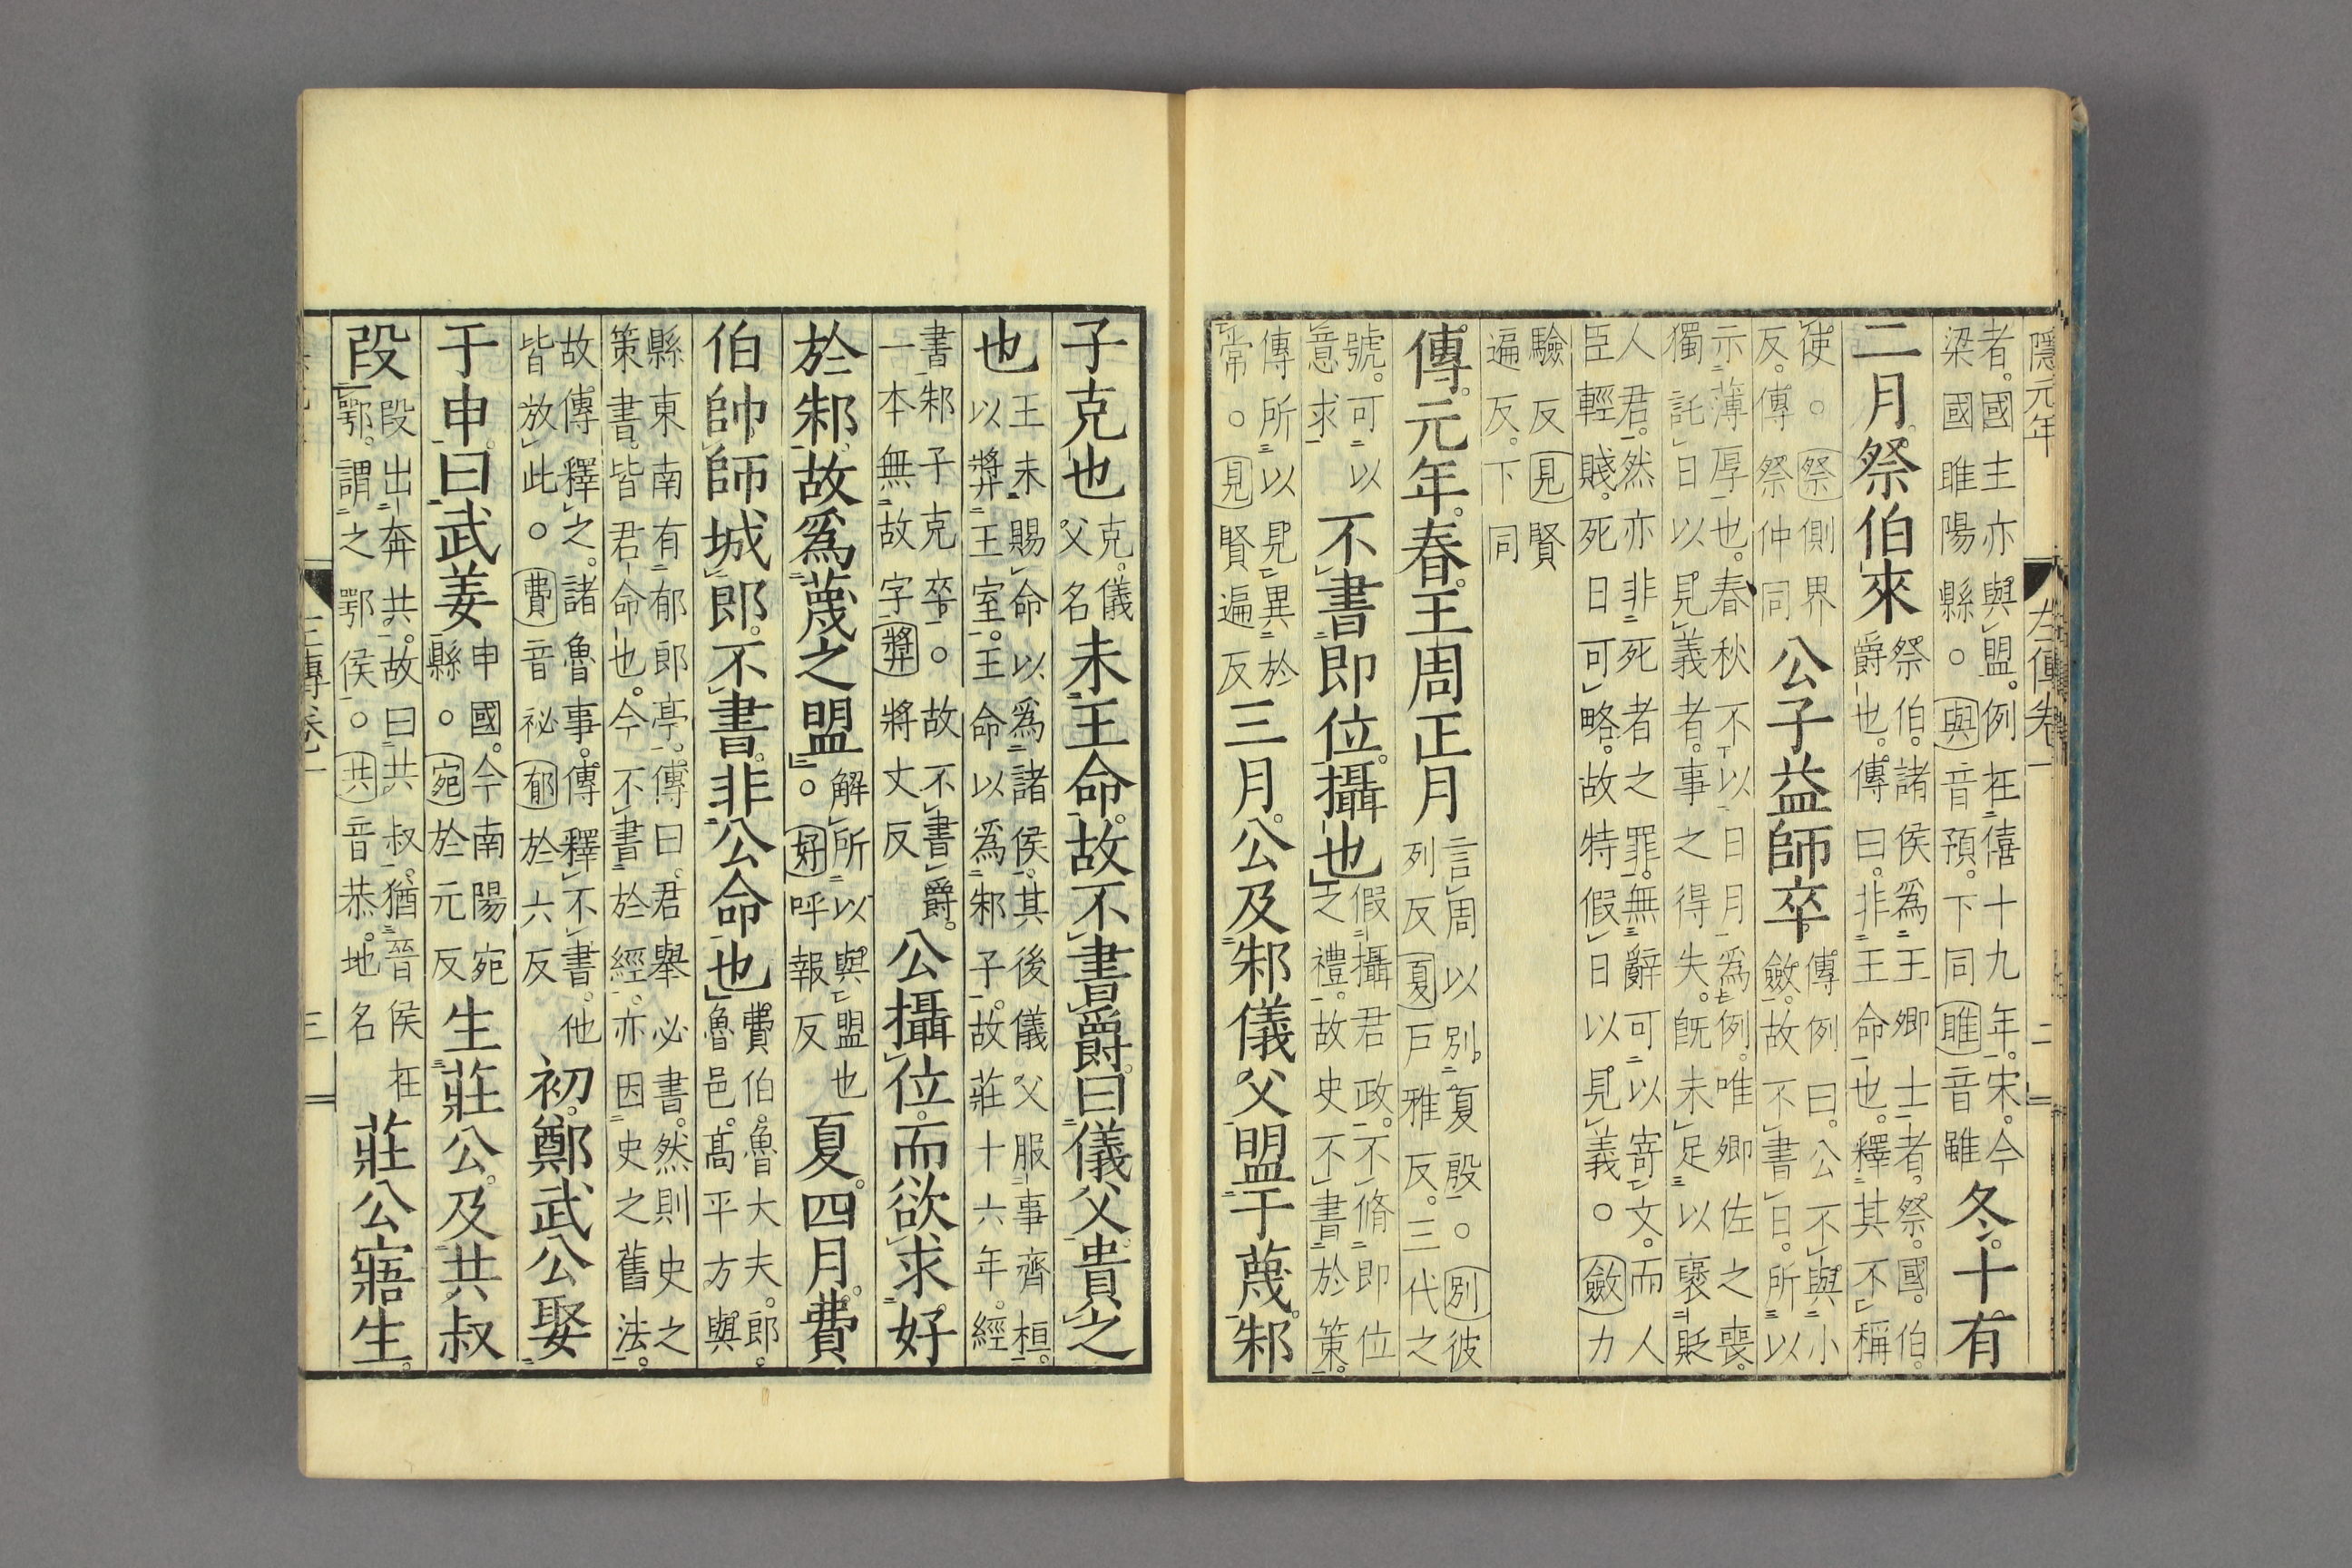 隱元年 左傳卷一 二
者。國主亦與盟。例在僖十九年。宋。今梁國雎陽縣。○與音預。下同雎音雖冬。十有
二月。祭伯來祭伯。諸侯爲王卿士者。祭。國。伯。爵也。傳曰。非王命也。釋其不稱
使。○祭側界反。傳祭仲同公子益師卒。傳例曰。公不與小斂。故不書日。所以
示薄厚也。春秋不以日月爲例。唯卿佐之喪。獨託日以見義者。事之得失。旣未足以襃貶
人君。然亦非死者之罪。無辭可以寄文。而人臣輕賤。死日可略。故特假日以見義。○斂力
驗反見賢遍反。下同
傳。元年。春。王周正月言周以別夏殷。○別彼列反夏戸雅反。三代之
號。可以意求不書即位。攝也假攝君政。不脩即位之禮。故史不書於策。
傳所以見異於常。○見賢遍反三月。公及邾儀父盟于蔑。邾
子克也克。儀父名未王命。故不書爵。曰儀父。貴之
也王未賜命以爲諸侯。其後儀父服事齊桓。以奬王室。王命以爲邾子。故莊十六年。經
書邾子克卒。○故不書爵。一本無故字奬將丈反公攝位。而欲求好
於邾。故爲蔑之盟。解所以與盟也○好呼報反夏。四月。費
伯帥師城郎。不書。非公命也費伯。魯大夫。郎。魯邑。高平方與
縣東南有郁郎亭。傳曰。君舉必書。然則史之策書。皆君命也。今不書於經。亦因史之舊法。
故傳釋之。諸魯事。傳釋不書。他皆放此。○費音祕郁於六反初。鄭武公娶
于申。曰武姜申國。今南陽宛縣。○宛於元反生莊公。及共叔
段段出奔共。故曰共叔。猶晉侯在鄂。謂之鄂侯。○共音恭。地名莊公寤生。
三